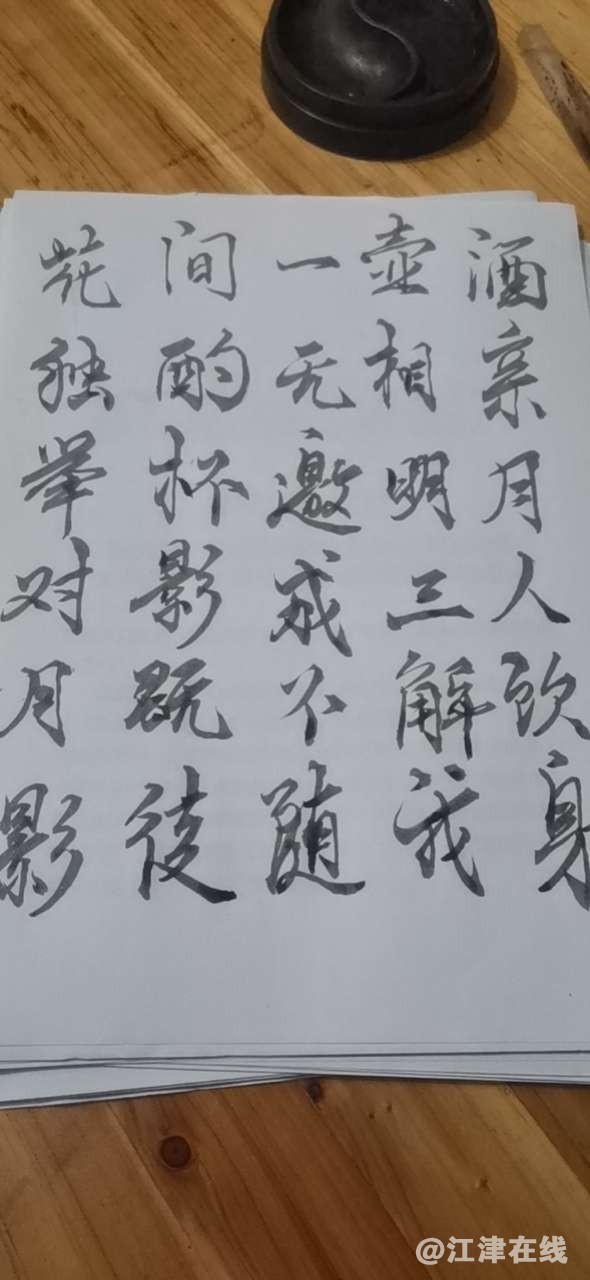 花间一壶酒
独酌无相亲
举杯邀明月
对影成三人
月既不解饮
影徒随我身
@江津在线